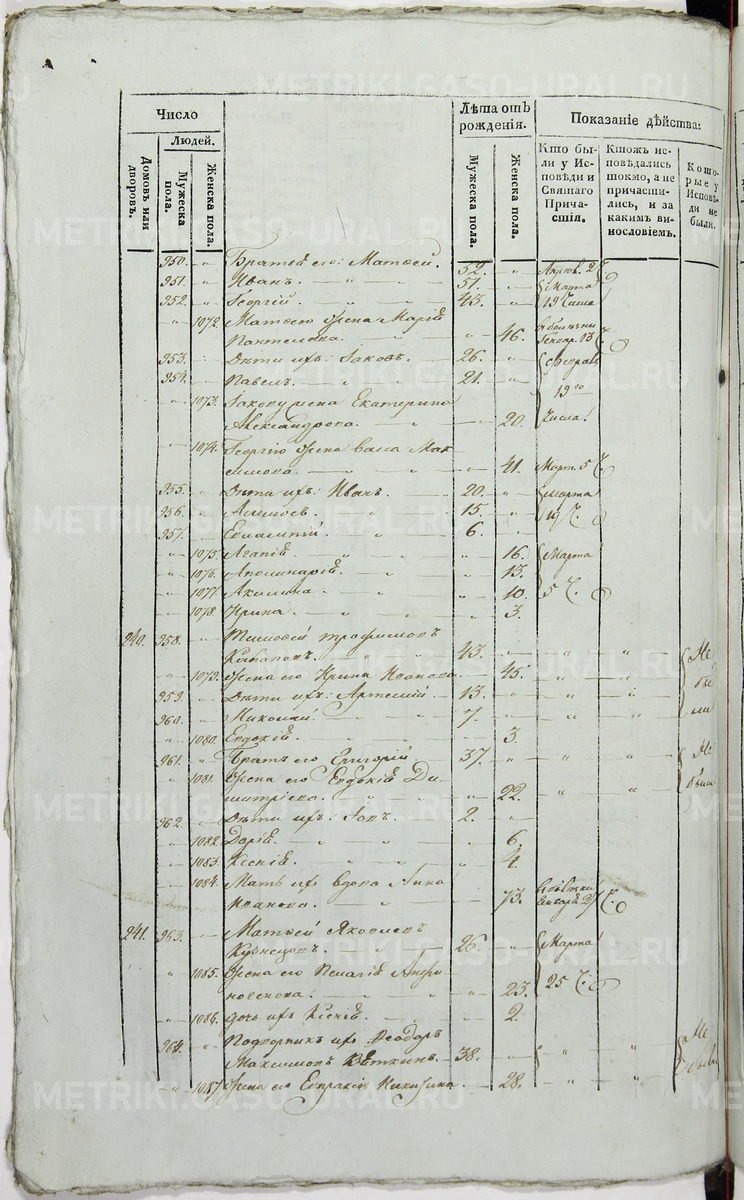 Число
Людей.
Домовъ или дворовъ.
Мужеска пола.
Женска пола.
Лѣта отъ рожденія.
Мужеска пола.
Женска пола.
Показаніе дѣйства:
Кто были у Исповѣди и Святаго Причастія.
Ктожъ исповѣдались токмо, а не причастились, и за какимъ винословіемъ.
Которые у Исповѣди не были.
950. " Братья его: Матѳей. 52. "
951. " Иванъ. 51. " Марта
952. " Георгій. 43. " 19 числа
" 1072 Матѳею жена Марія
Пантелеева. " 46.
953. " Дѣти ихъ: Іаковъ. 26. "
954. " Павелъ. 21. " 19го
" 1073. Іакову жена Екатерина
Александрова. " 20. числа
1074. Георгію жена Васса Мак
симова. " 41. Март. 5 Ч.
955. " Дѣти ихъ: Иванъ. 20. " Марта
956. " 15. " 19 Ч.
957. " Евлампій. 6. "
" 1075. Агапія. " 16. Марта
" 1076. Аполинарія. " 13.
" 1077. Акилина. " 10. 5 Ч.
" 1078. Ирина. " 3.
240. 958. " Тимоѳей Трофимовъ
43. " " " Не
" 1079. Жена его Ирина Иванова. 45. " " бы
959. " Дѣти ихъ: Артемій. 13. " " " ли
960. " Николай. 7. " " "
" 1080. Евдокія. 3.
961. " Братъ его Григорій. 37. " " " Не
" 1081. Жена его Евдокія Ди
митріева. " 22. " " были
962. " Дѣти ихъ: Іовъ. 2. "
" 1082. Дарія. " 6.
" 1083. Ксенія. " 4.
" 1084. Мать ихъ вдова Анна
Иванова. " 73.
241. 963. " Матѳей Яковлевъ
Кузнецовъ. 26. " Марта
" 1085. Жена его Пелагія
" 23. 25 Ч.
" 1086. Дочь ихъ Ксенія. " 2.
964. " Подворникъ ихъ Ѳеодоръ
Максимовъ Вѣткинъ. 38. " " " Не были
" 1087 Жена его Евпраксія Никитина. 28. " "
METRIKI.GASO-URAL.RU